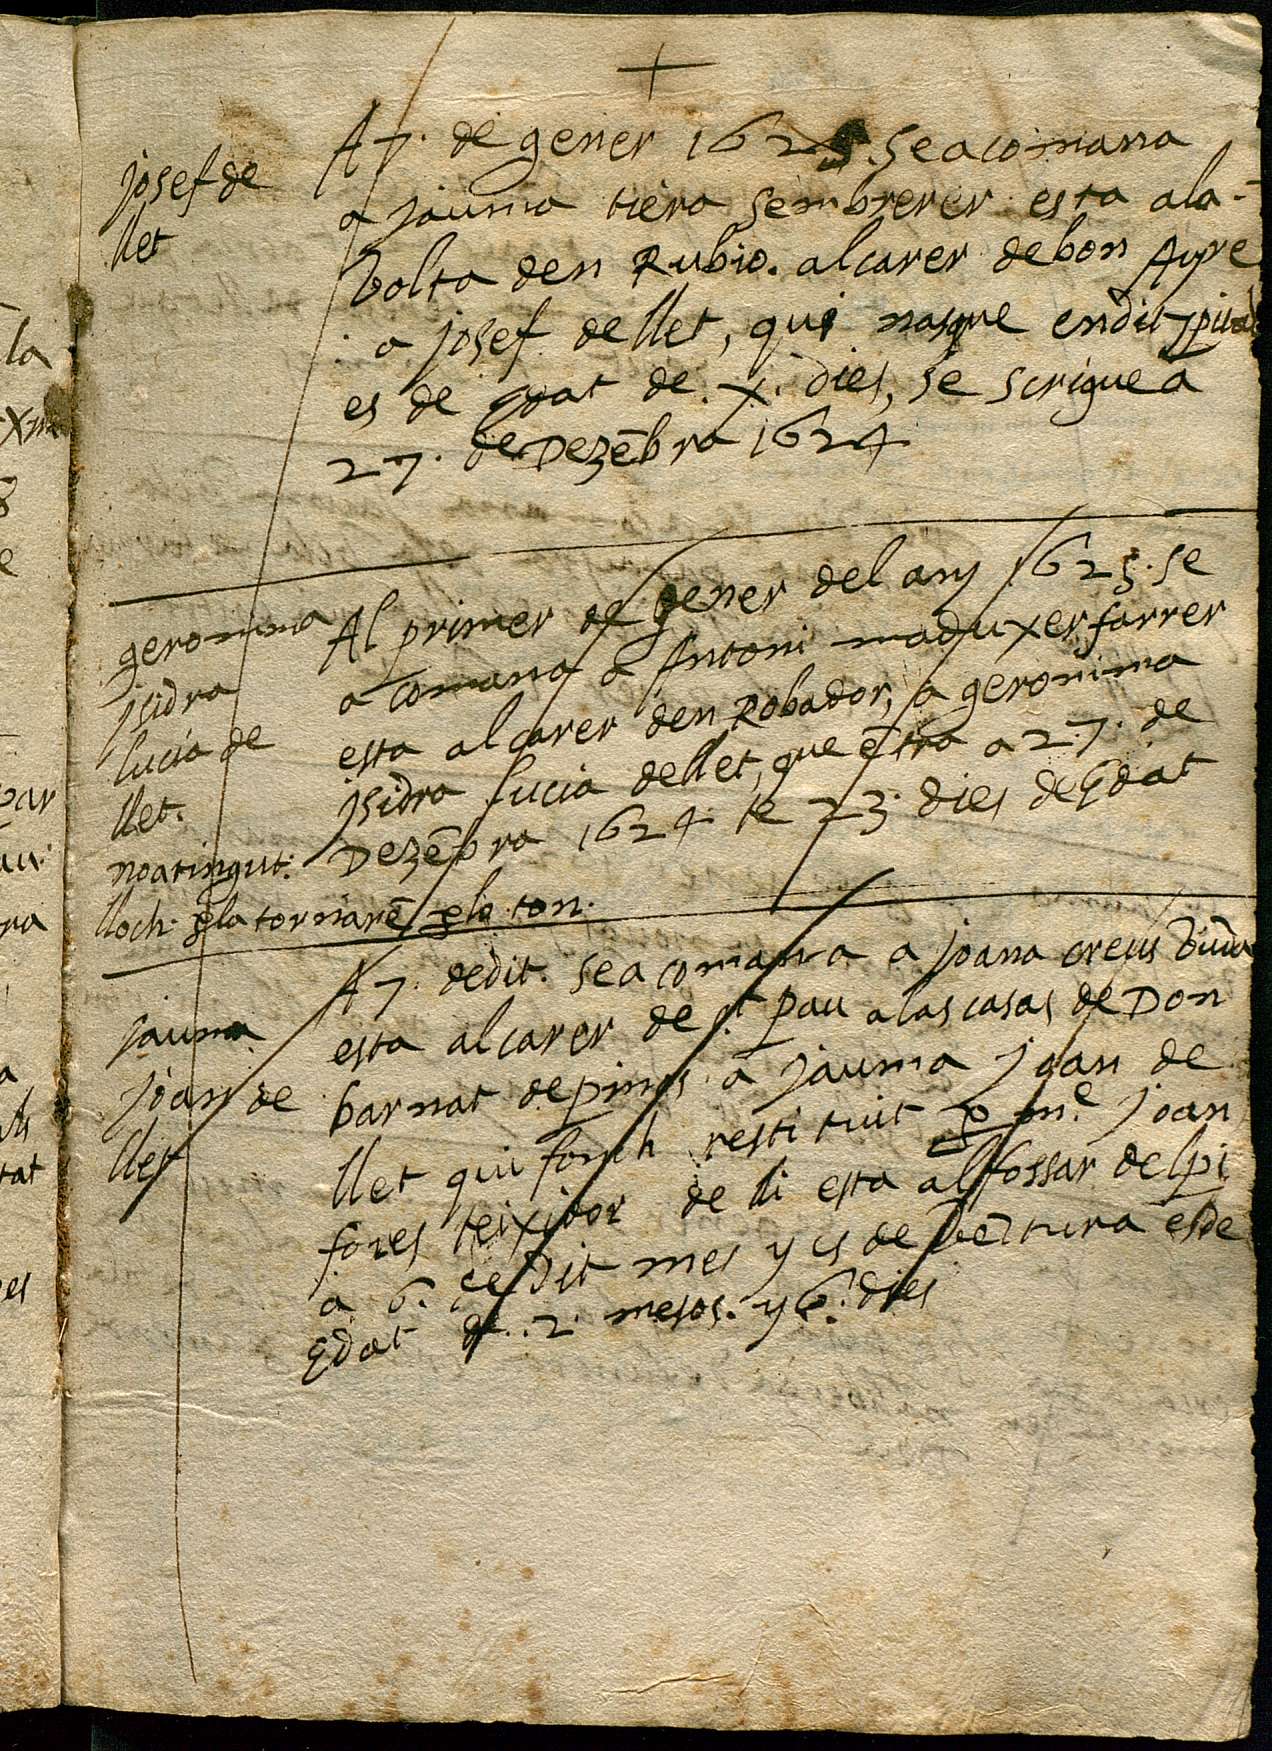 josef de
llet
A 7. de gener 1625. se acomana
a jauma tiera sembrerer esta ala-
bolta den Rubio. al carer de bon Ayre
a josef de llet, qui nasque en dit
es de edat de. x. dies, se scrigue a
27. de Dezēbra 1624
geronima
jsidra
lucia de
llet.
noatingut.
lloch. ꝑla tornarē ꝑlo ton.
Al primer de gener del any 1625. se
acomana a Antoni maduxer farrer
esta al carer den Robador, a geronima
jsidra lucia de llet, que ētra a 27. de
Dezēbra 1624 te 23. dies de Edat
jauma
joan de
llet
A 7. de dit. se acomana a joana creus Viuda
esta al carer de st pau a las casas de Don
barnat de pinos a jauma joan de
llet qui fonch restituit ꝑ me joan
fores teixidor de lli esta al fossar del pi
a 6. de Dit mes y es de bētura es de
Edat de. 2. mesos. y 6. dies
la
Xm
8
e
par
ra
a
tat
es